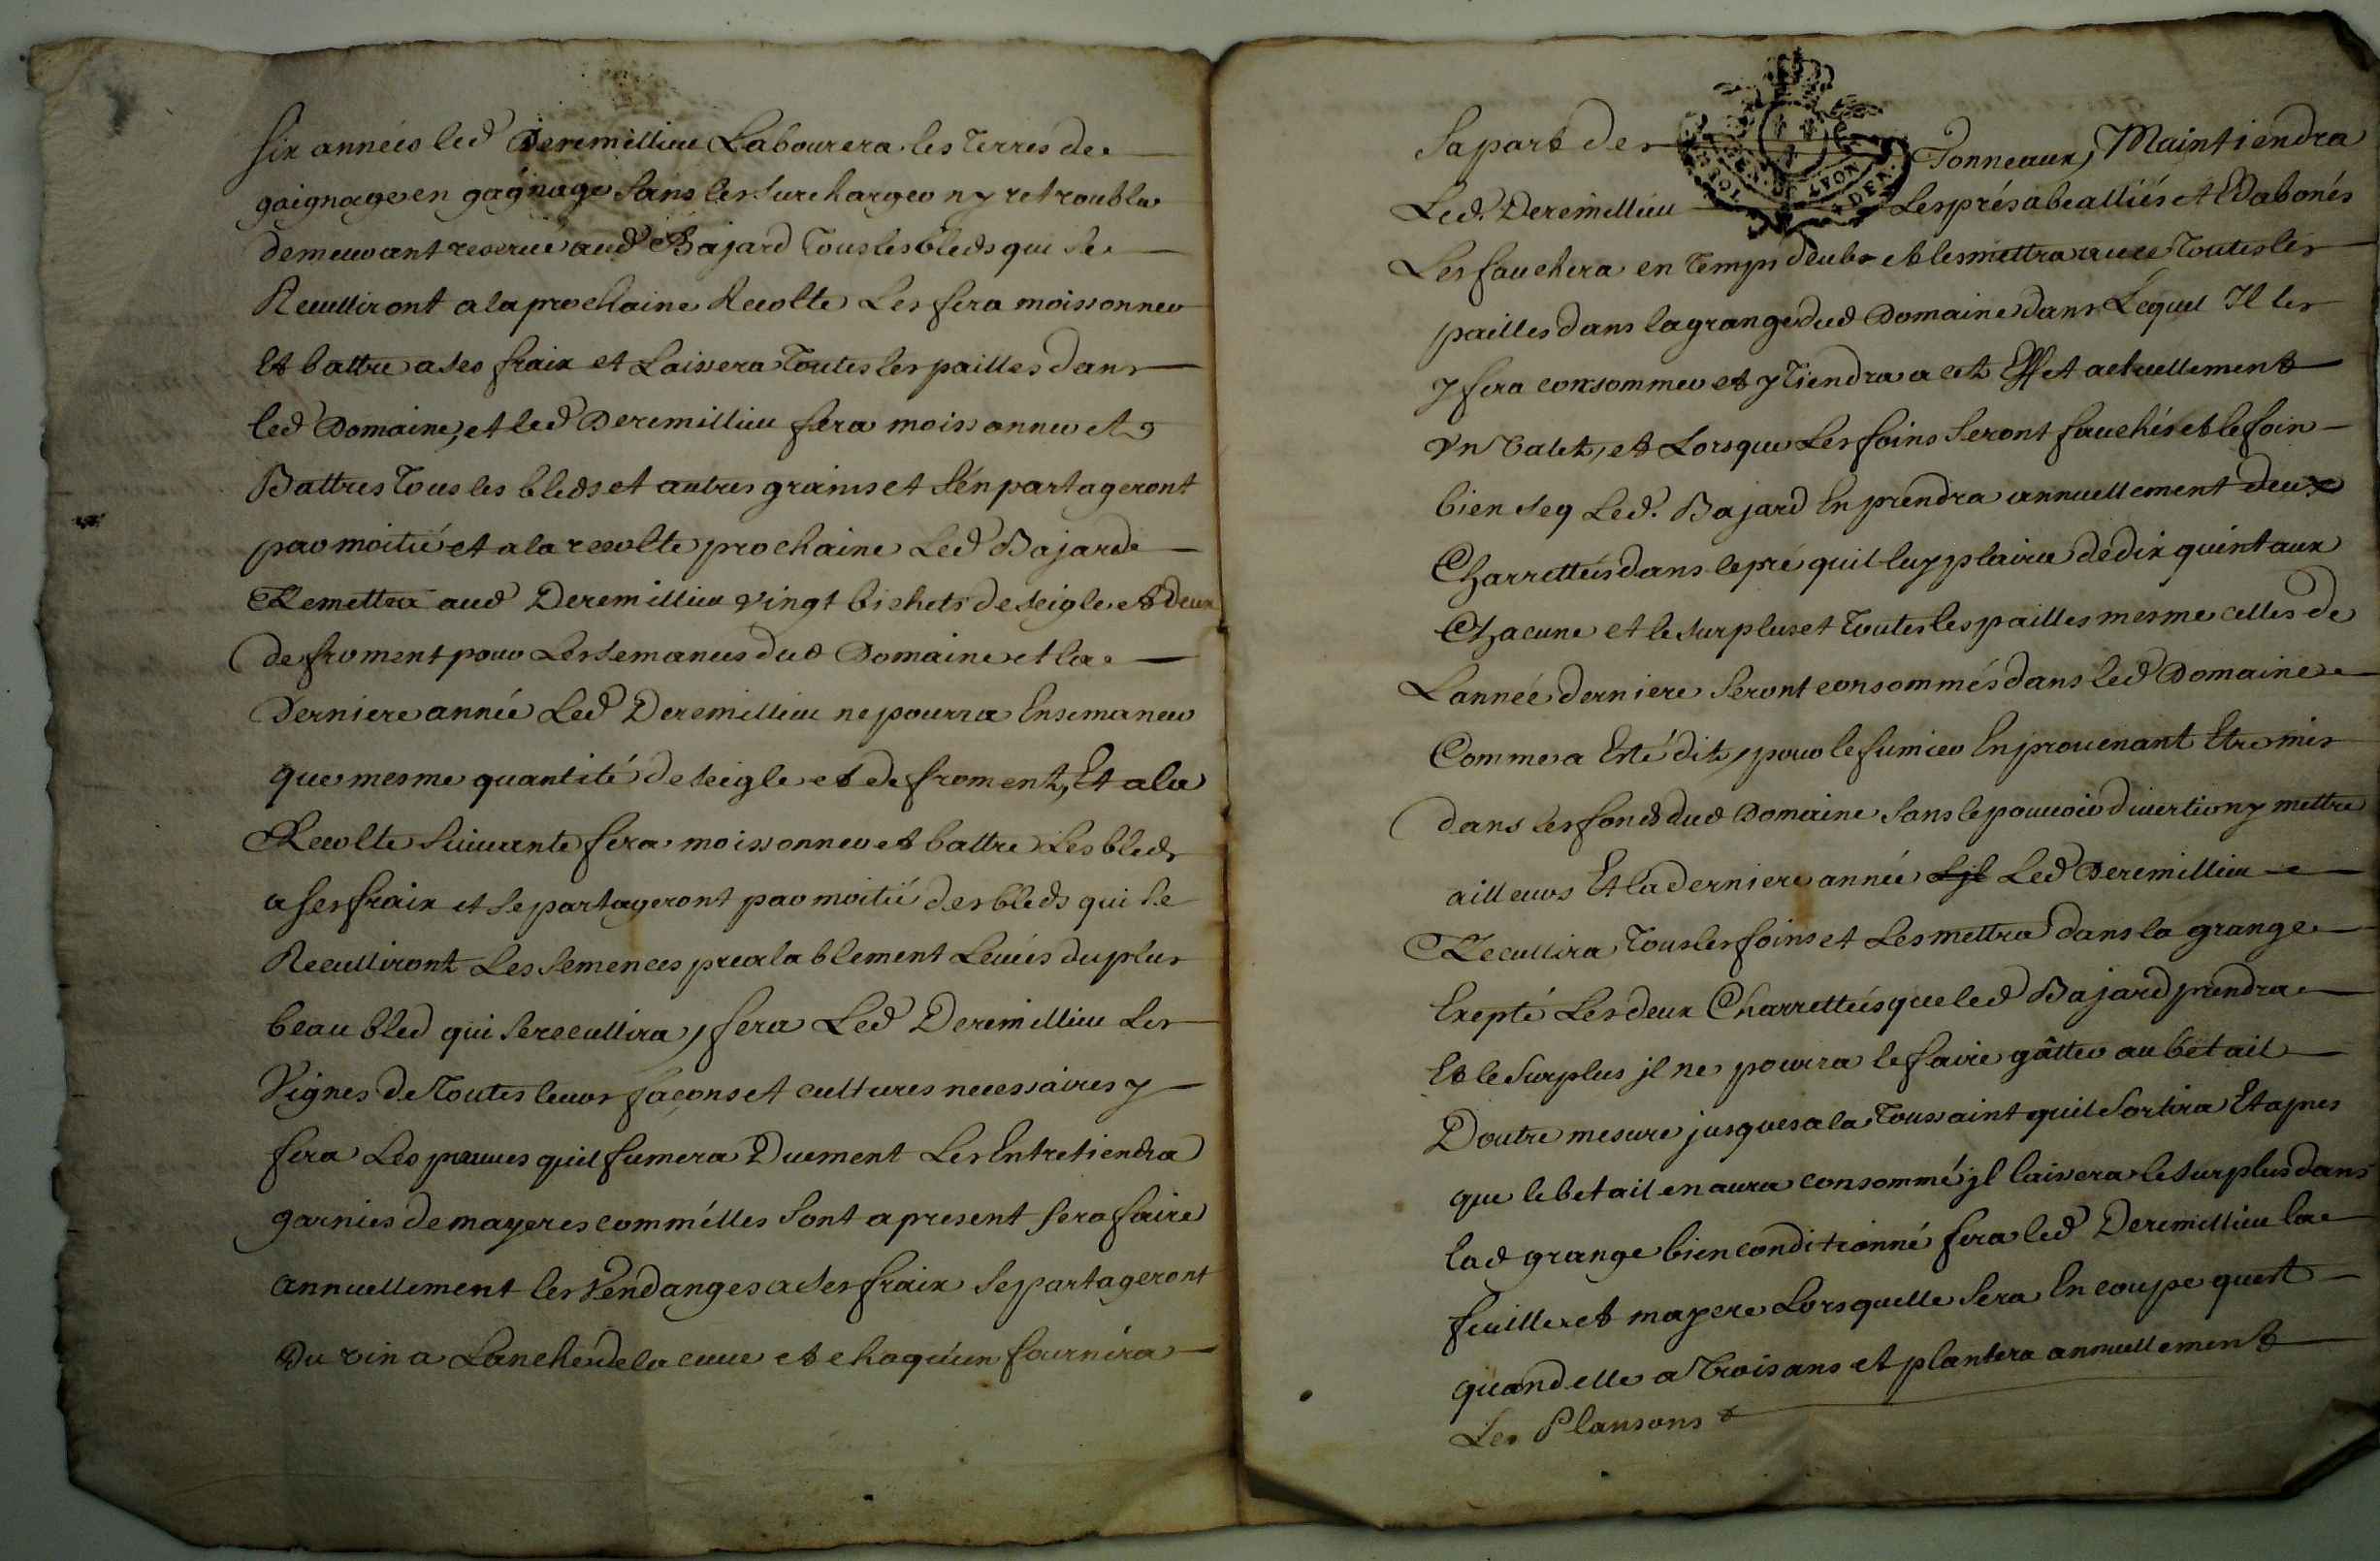 six années led Deremillieu Labourera les Terres de
gaignage en gagnage sans les surcharger ny retroubla
demeurant reservé aud Bajard Tous les bleds qui se
Reculliront a la prochaine Recolte Les fera moissonner
Et battre a ses fraix et Laissera Toutes les pailles dans
led Domaine, et led Deremillieu fera moissonner et
Battres Tous les bleds et autres grains et s'en partageront
par moitié et a la recolte prochaine Led Bajard
Remettra aud Deremillieu vingt bichets de seigle et deux
de froment pour Les semances dud Domaine et la
Derniere année Led Deremillieu ne pourra Ensemancer
que mesme quantité de seigle et de froment, Et a la
Recolte suivante fera moissonner et battre Les bleds
a ses fraix et se partageront par moitié des bleds qui se
Recülliront Les semences prealablement Levées du plus
beau bled qui se recullira, fera Led Deremillieu Les
Vignes de Toutes leurs façons et cultures necessaires y
fera Les preuues quil fumera Duement Les Entretiendra
garnies de mayeres comm'elles sont a present fera faire
annuellement les Vendanges a ses fraix se partageront
Du vin a Lanche de la cuue et chaqu'un fournira
sa part des Tonneaux, Maintiendra
Led. Deremillieu Les prés abealliés et Dabonés
Les fauchera en Temps deub et les mettra avec Toutes les
pailles dans la grange dud Domaine dans Lequel Il les
y fera consommer et y Tiendra a cet Effet actuellement
vn Valet, et Lorsque Les foins seront fauchés et le foin
bien seq Led. Bajard En prendra annuellement deux
Charrettées dans le pré quil luy plaira de dix quintaux
Chacune et le surplus et Toutes les pailles mesme celles de
Lannée derniere seront consommés dans led Domaine
Comme a Esté dit, pour le fumier En prouenant Etre mis
dans les fonds dud Domaine sans le pouuoir diuertir ny mettre
ailleurs Et la derniere année Led Deremillieu
Recullira Tous les foins et Les mettra dans la grange
Exepté Les deux Charrettées que led Bajard prendra
Et le surplus jl ne pourra le faire gâtter au betail
Doutre mesure jusques a la Toussaint quil sortira Et apres
que le betail en aura consommé jl laissera le surplus dans
lad grange bien conditionné fera led Deremillieu la
feuille et mayere Lorsquelle sera En coupe quest
quand elle a Trois ans et plantera annuellement
Les Plansons